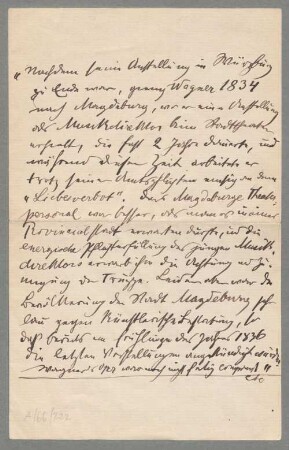 "Nachdem seine Anstellung in Würzburg
zu Ende war, ging Wagner 1834
nach Magdeburg, wo er eine Anstellung
als Musikdirektor beim Stadttheater
erhielt, die fast 2 Jahre dauerte, und
während dieser Zeit arbeitete er
trotz seiner Amtspflichten emsig an dem
"Liebesverbot". Das Magdeburger Theater
personal war besser, als man es in einer
Provinzialstadt erwarten durfte, und die
energische Pflichterfüllung des jungen Musik
direktors erwarb ihm die Achtung und Zu
neigung der Truppe. Leider aber war die
Bevölkerung der Stadt Magdeburg sehr
lau gegen künstlerische Bestrebung, so
daß bereits im Frühlinge des Jahres 1836
die letzten Vorstellungen angekündigt wurden,
Wagners Oper war noch nicht fertig componirt"
etc
A/66/232